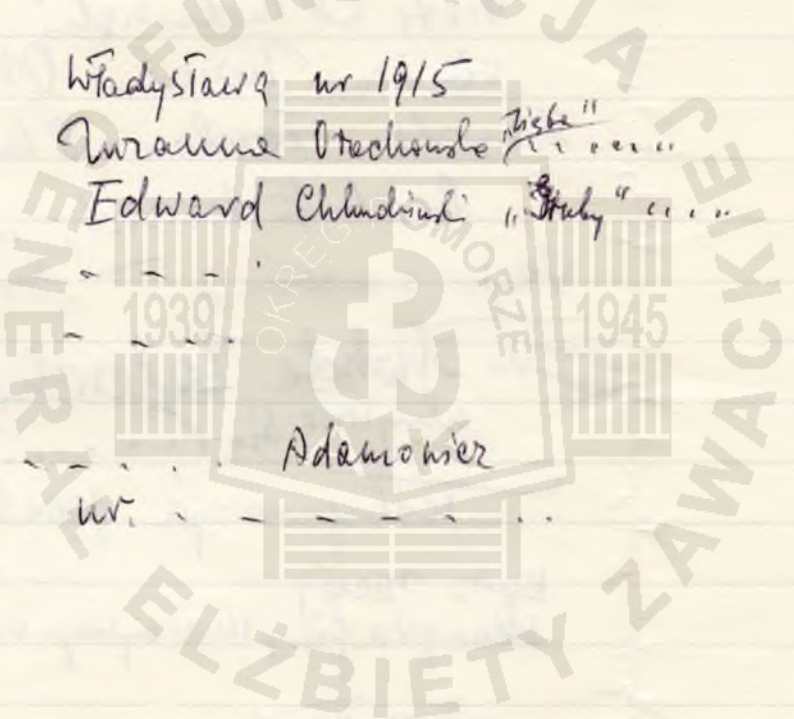 Władysława ur 1915
Zuzanna Orachowska „Zięba" . . . . . .
Edward Chludziński „Gruby" . . . .
- - - .
- - - - .
- - . . . Adamowicz
ur. . - - - - . . .
FUNDACJA GENERAŁ ELŻBIETY ZAWACKIEJ
OKRĘG POMORZE
1939
1945
AK